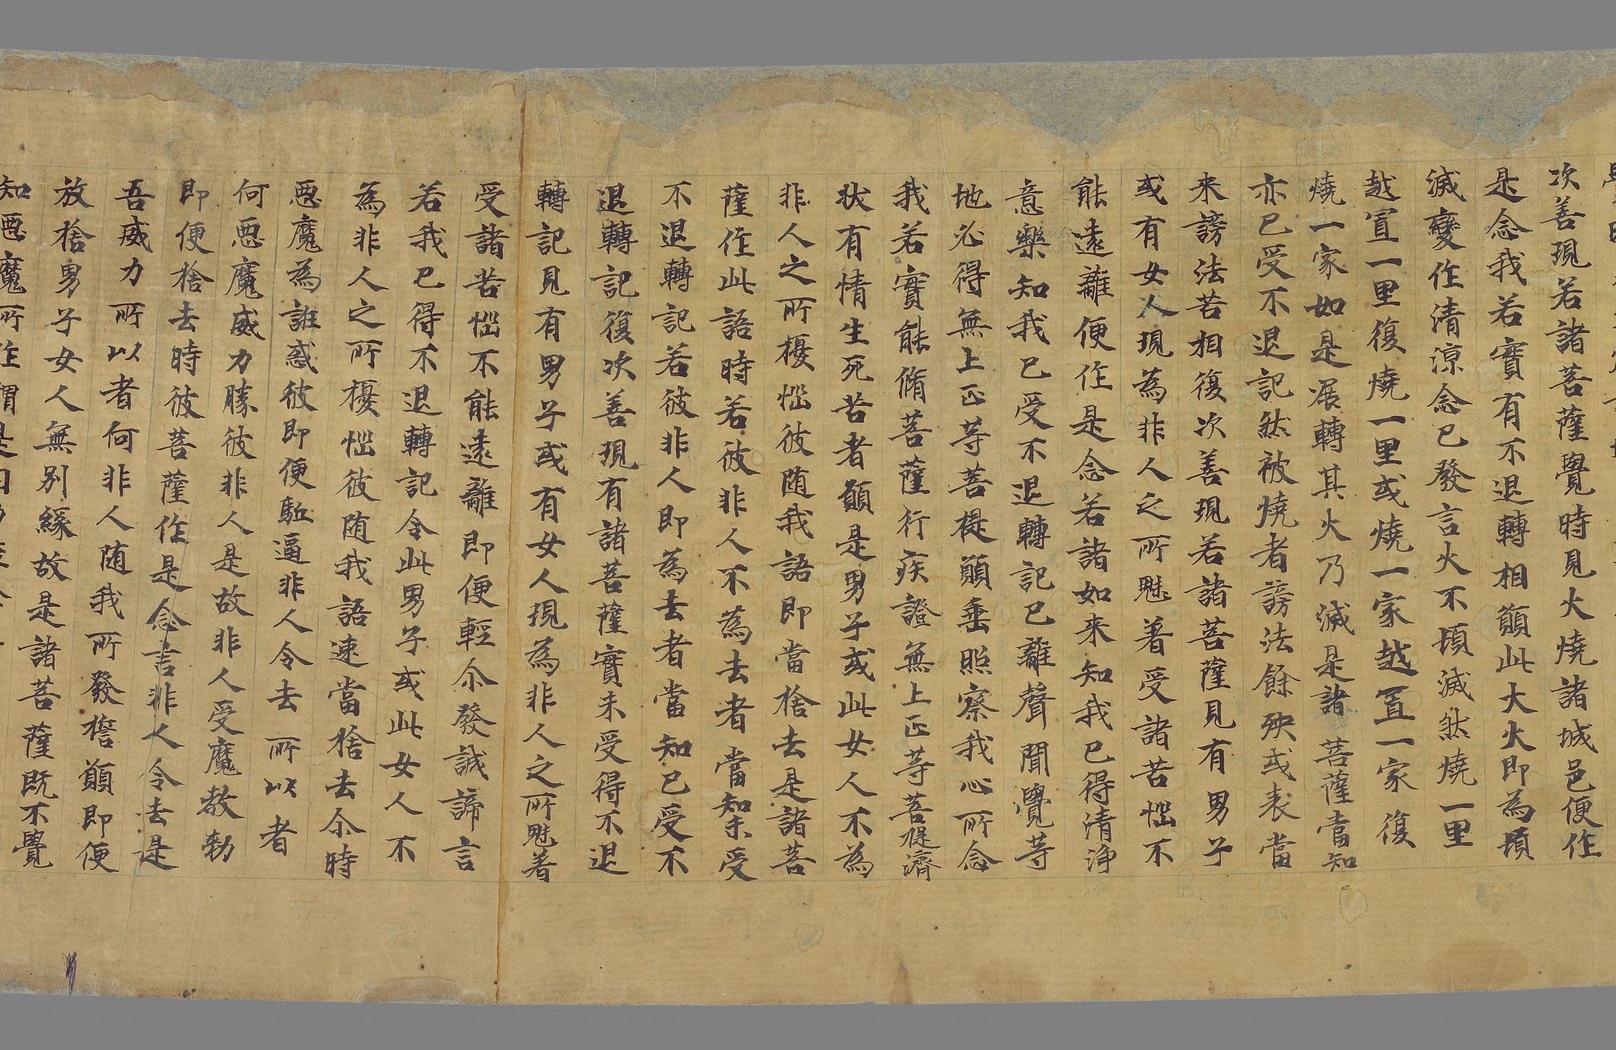 次善現若諸菩薩覺時見火燒諸城邑便作
是念我若實有不退轉相願此大火即為頓
滅變作清涼念已發言火不頓滅然燒一里
越置一里復燒一里或燒一家越置一家復
燒一家如是展轉其火乃滅是諸菩薩當知
亦已受不退記然被燒者謗法餘殃或表當
来謗法苦相復次善現若諸菩薩見有男子
或有女人現為非人之所魅著受諸苦惱不
能遠離便作是念若諸如来知我已得清淨
意樂知我已受不退轉記已離聲聞覺等
地必得無上正等菩提願垂照察我心所念
我若實能脩菩薩行疾證無上正等菩提濟
狀有情生死苦者願是男子或此女人不為
非人之所擾惱彼随我語即當捨去是諸菩
薩作此語時若彼非人不為去者當知未受
不退轉記若彼非人即為去者當知已受不
退轉記復次善現有諸菩薩實未受得不退
轉記見有男子或有女人現為非人之所魅著
受諸苦惱不能遠離即便輕尒發誠諦言
若我已得不退轉記令此男子或此女人不
為非人之所擾惱彼随我語速當捨去尒時
惡魔為誑惑彼即便駈逼非人令去所以者
何惡魔威力勝彼非人是故非人受魔教勅
即便捨去時彼菩薩作是念言非人令去是
吾威力所以者何非人随我所發誓願即便
放捨男子女人無別緣故是諸菩薩既不覺
知惡魔所作謂是